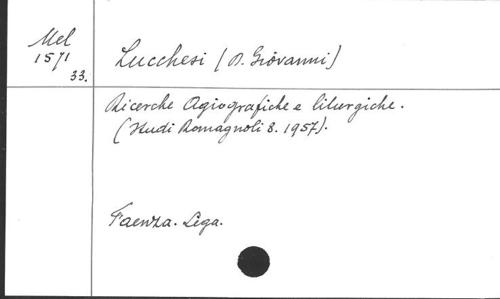 Mel
1571
33.
Lucchesi (D. Giovanni)
Ricerche Agiografiche e liturgiche.
(Studi Romagnoli 8. 1957).
Faenza. Lega.